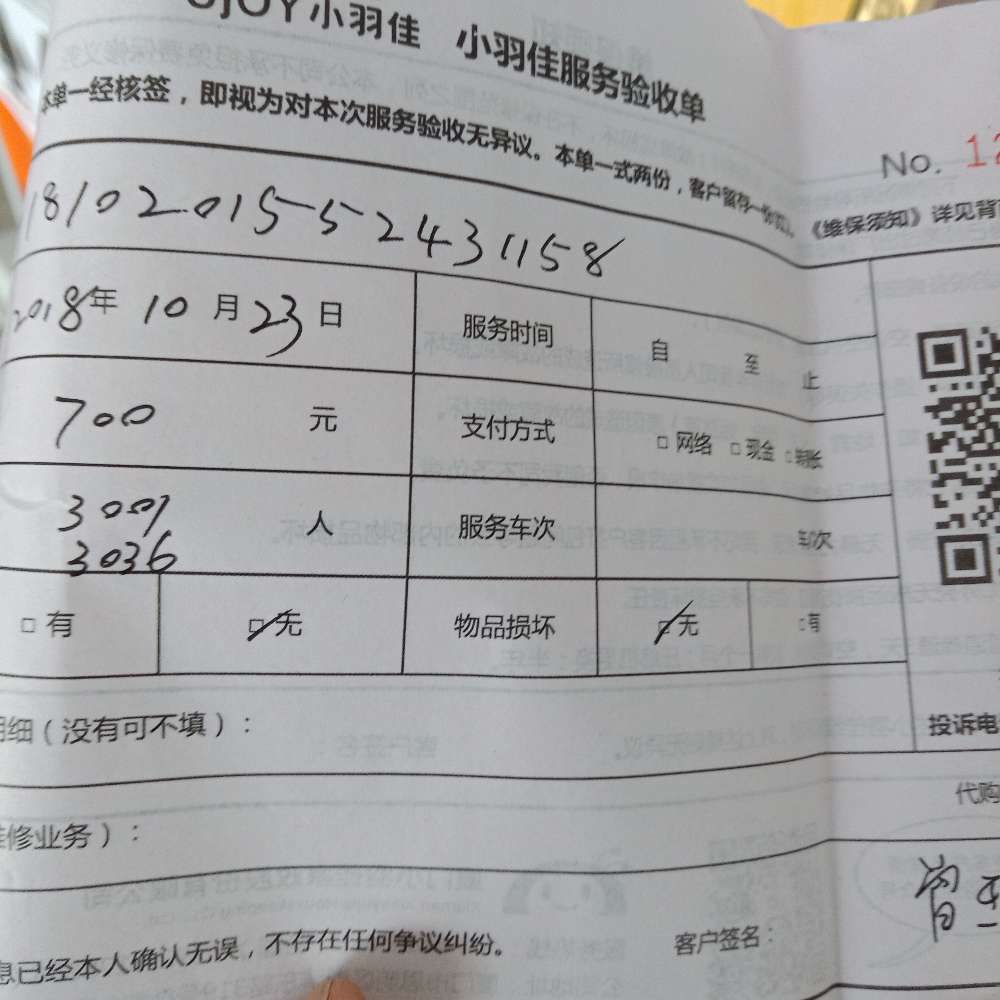 UJOY小羽佳 小羽佳服务验收单
本单一经核签，即视为对本次服务验收无异议。本单一式两份，客户留存一份
No. 12
《维保须知》详见背
18102015-52431158
2018年 10月23日 服务时间 自 至 止
700 元 支付方式 □网络 □现金 □转账
3001
3036 人 服务车次 车次
□有 □无 物品损坏 □无 □有
明细（没有可不填）：
投诉电
代购
维修业务）：
息已经本人确认无误，不存在任何争议纠纷。 客户签名：